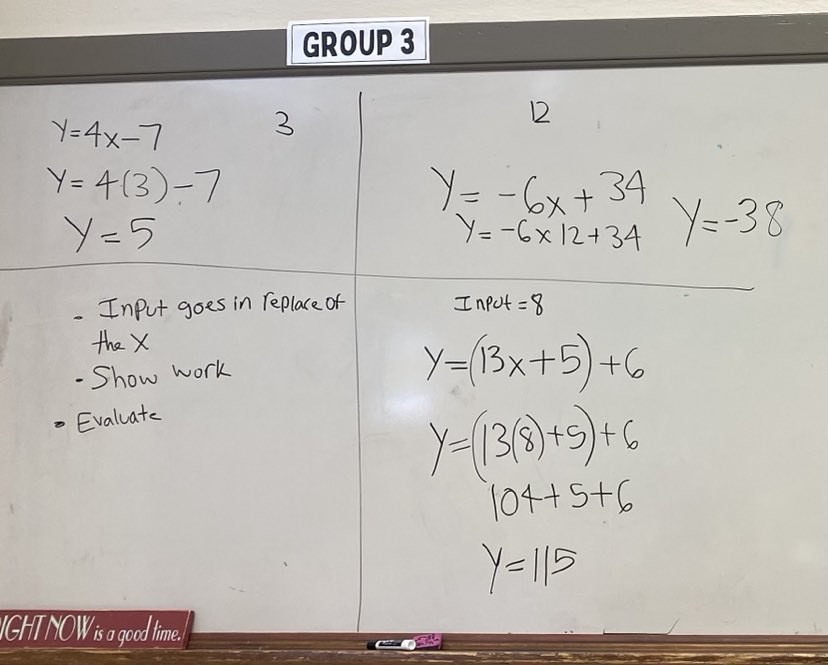 GROUP 3
Y=4x-7
3
Y=4(3)-7
Y=5
12
Y=-6x+34
Y=-6x12+34
Y=-38
- Input goes in replace of
the X
• Show work
• Evaluate
Input=8
Y=(13x+5)+6
Y=(13(8)+5)+6
104+5+6
Y=115
IGHT NOW is a good time.